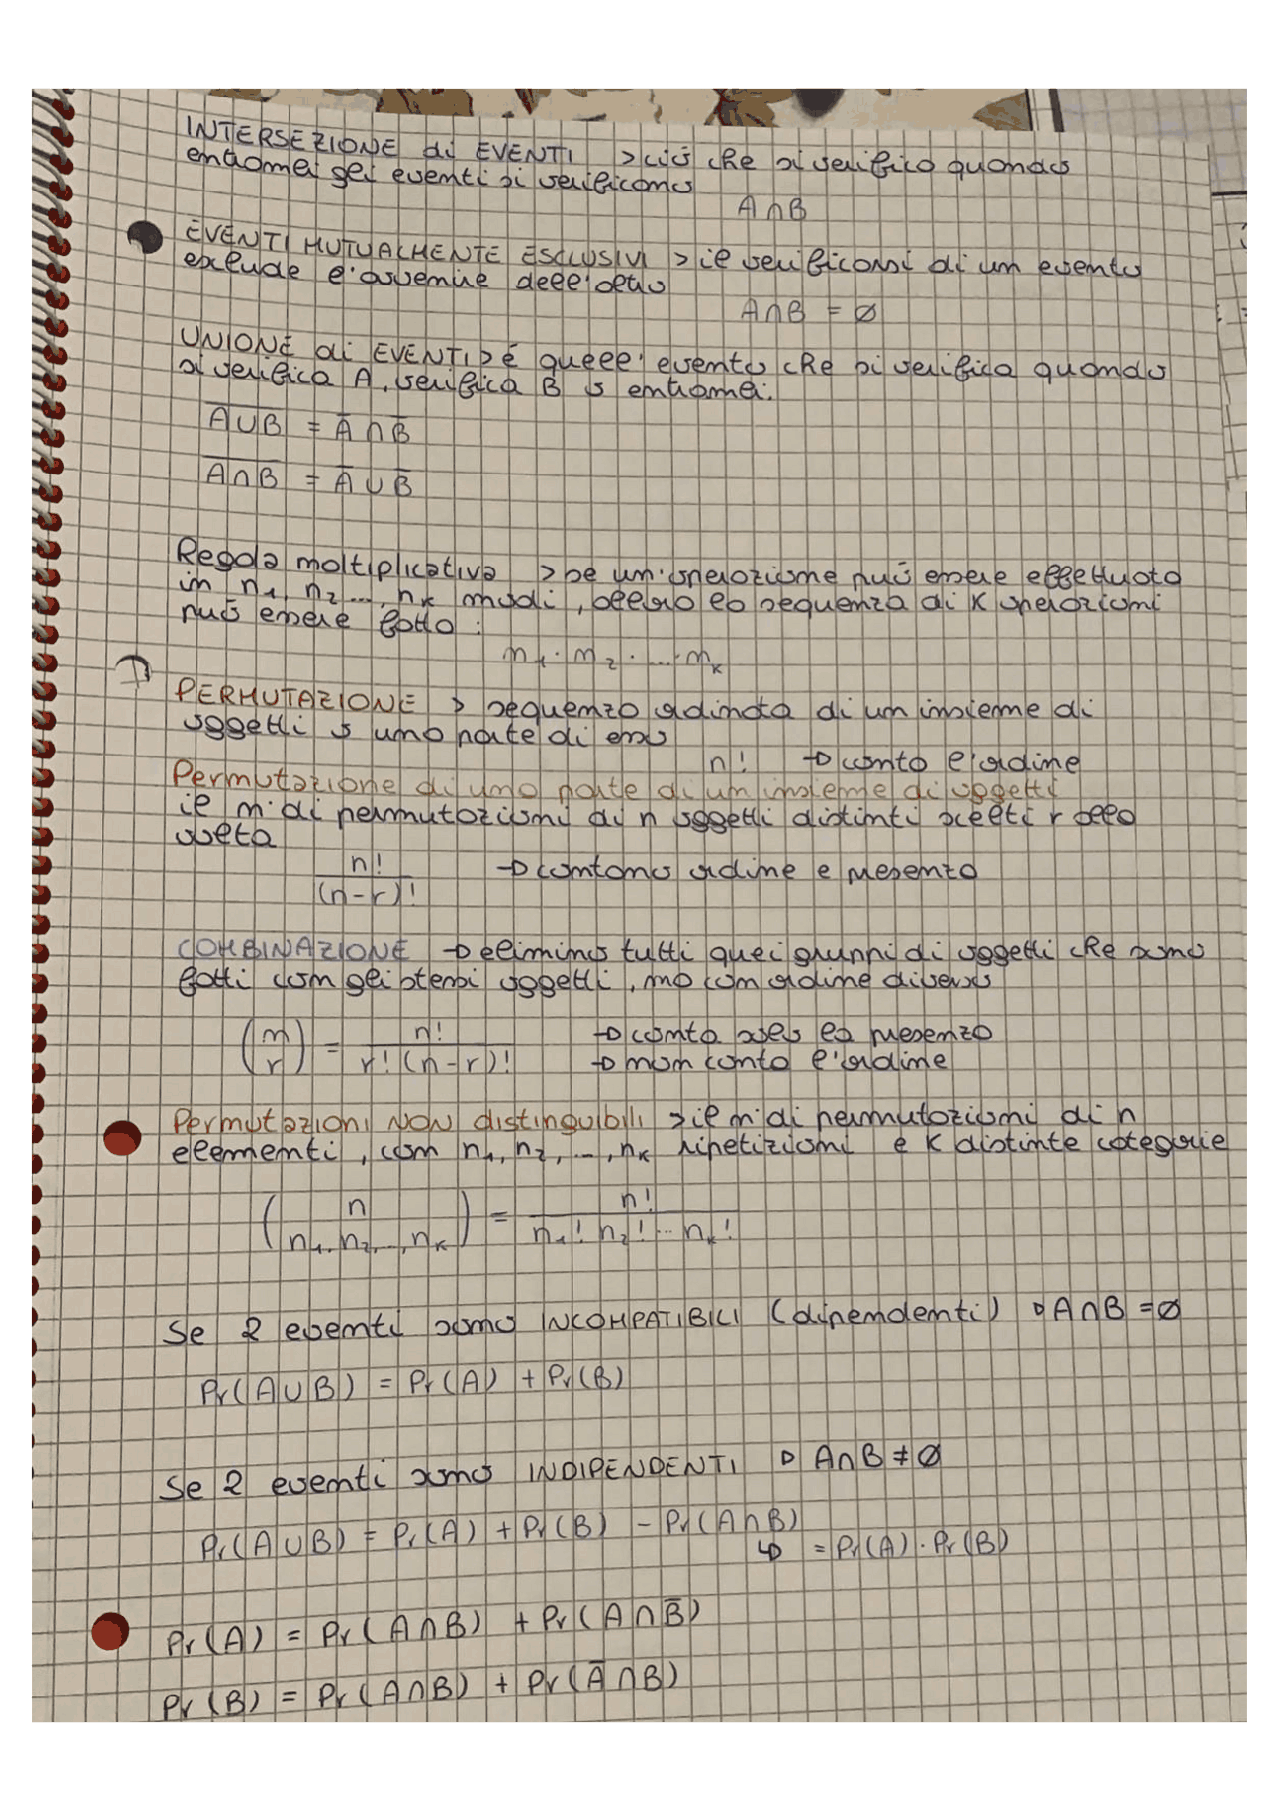 INTERSEZIONE di EVENTI > ciò che si verifica quando
entrambi gli eventi si verificano
A∩B
EVENTI MUTUALMENTE ESCLUSIVI > il verificarsi di un evento
exlude l'avvenire dell'altro
A∩B = ∅
UNIONE di EVENTI > é quell' evento che si verifica quando
si verifica A, verifica B o entrambi.
A̅∪̅B̅ = A̅ ∩ B̅
A̅∩̅B̅ = A̅ ∪ B̅
Regola moltiplicativa > se un'operazione può essere effettuata
in n₁, n₂ ..., nₖ modi, allora la sequenza di K operazioni
può essere fatta :
n₁ · n₂ · ... · nₖ
PERMUTAZIONE > sequenza ordinata di un insieme di
oggetti o una parte di esso
n! → conta l'ordine
Permutazione di una parte di un insieme di oggetti
il n° di permutazioni di n oggetti distinti scelti r alla
volta
n!/(n-r)! → contano ordine e presenza
COMBINAZIONE → elimino tutti quei gruppi di oggetti che sono
fatti con gli stessi oggetti, ma con ordine diverso
(n r) = n!/r!(n-r)! → conta solo la presenza
→ non conta l'ordine
Permutazioni NON distinguibili > il n° di permutazioni di n
elementi, con n₁, n₂, ..., nₖ ripetizioni e K distinte categorie
(n n₁, n₂, ..., nₖ) = n!/n₁! n₂! ... nₖ!
Se 2 eventi sono INCOMPATIBILI (dipendenti) ▷ A∩B = ∅
Pr(A∪B) = Pr(A) + Pr(B)
Se 2 eventi sono INDIPENDENTI ▷ A∩B ≠ ∅
Pr(A∪B) = Pr(A) + Pr(B) - Pr(A∩B)
↳ = Pr(A) · Pr(B)
Pr(A) = Pr(A∩B) + Pr(A∩B̅)
Pr(B) = Pr(A∩B) + Pr(A̅∩B)